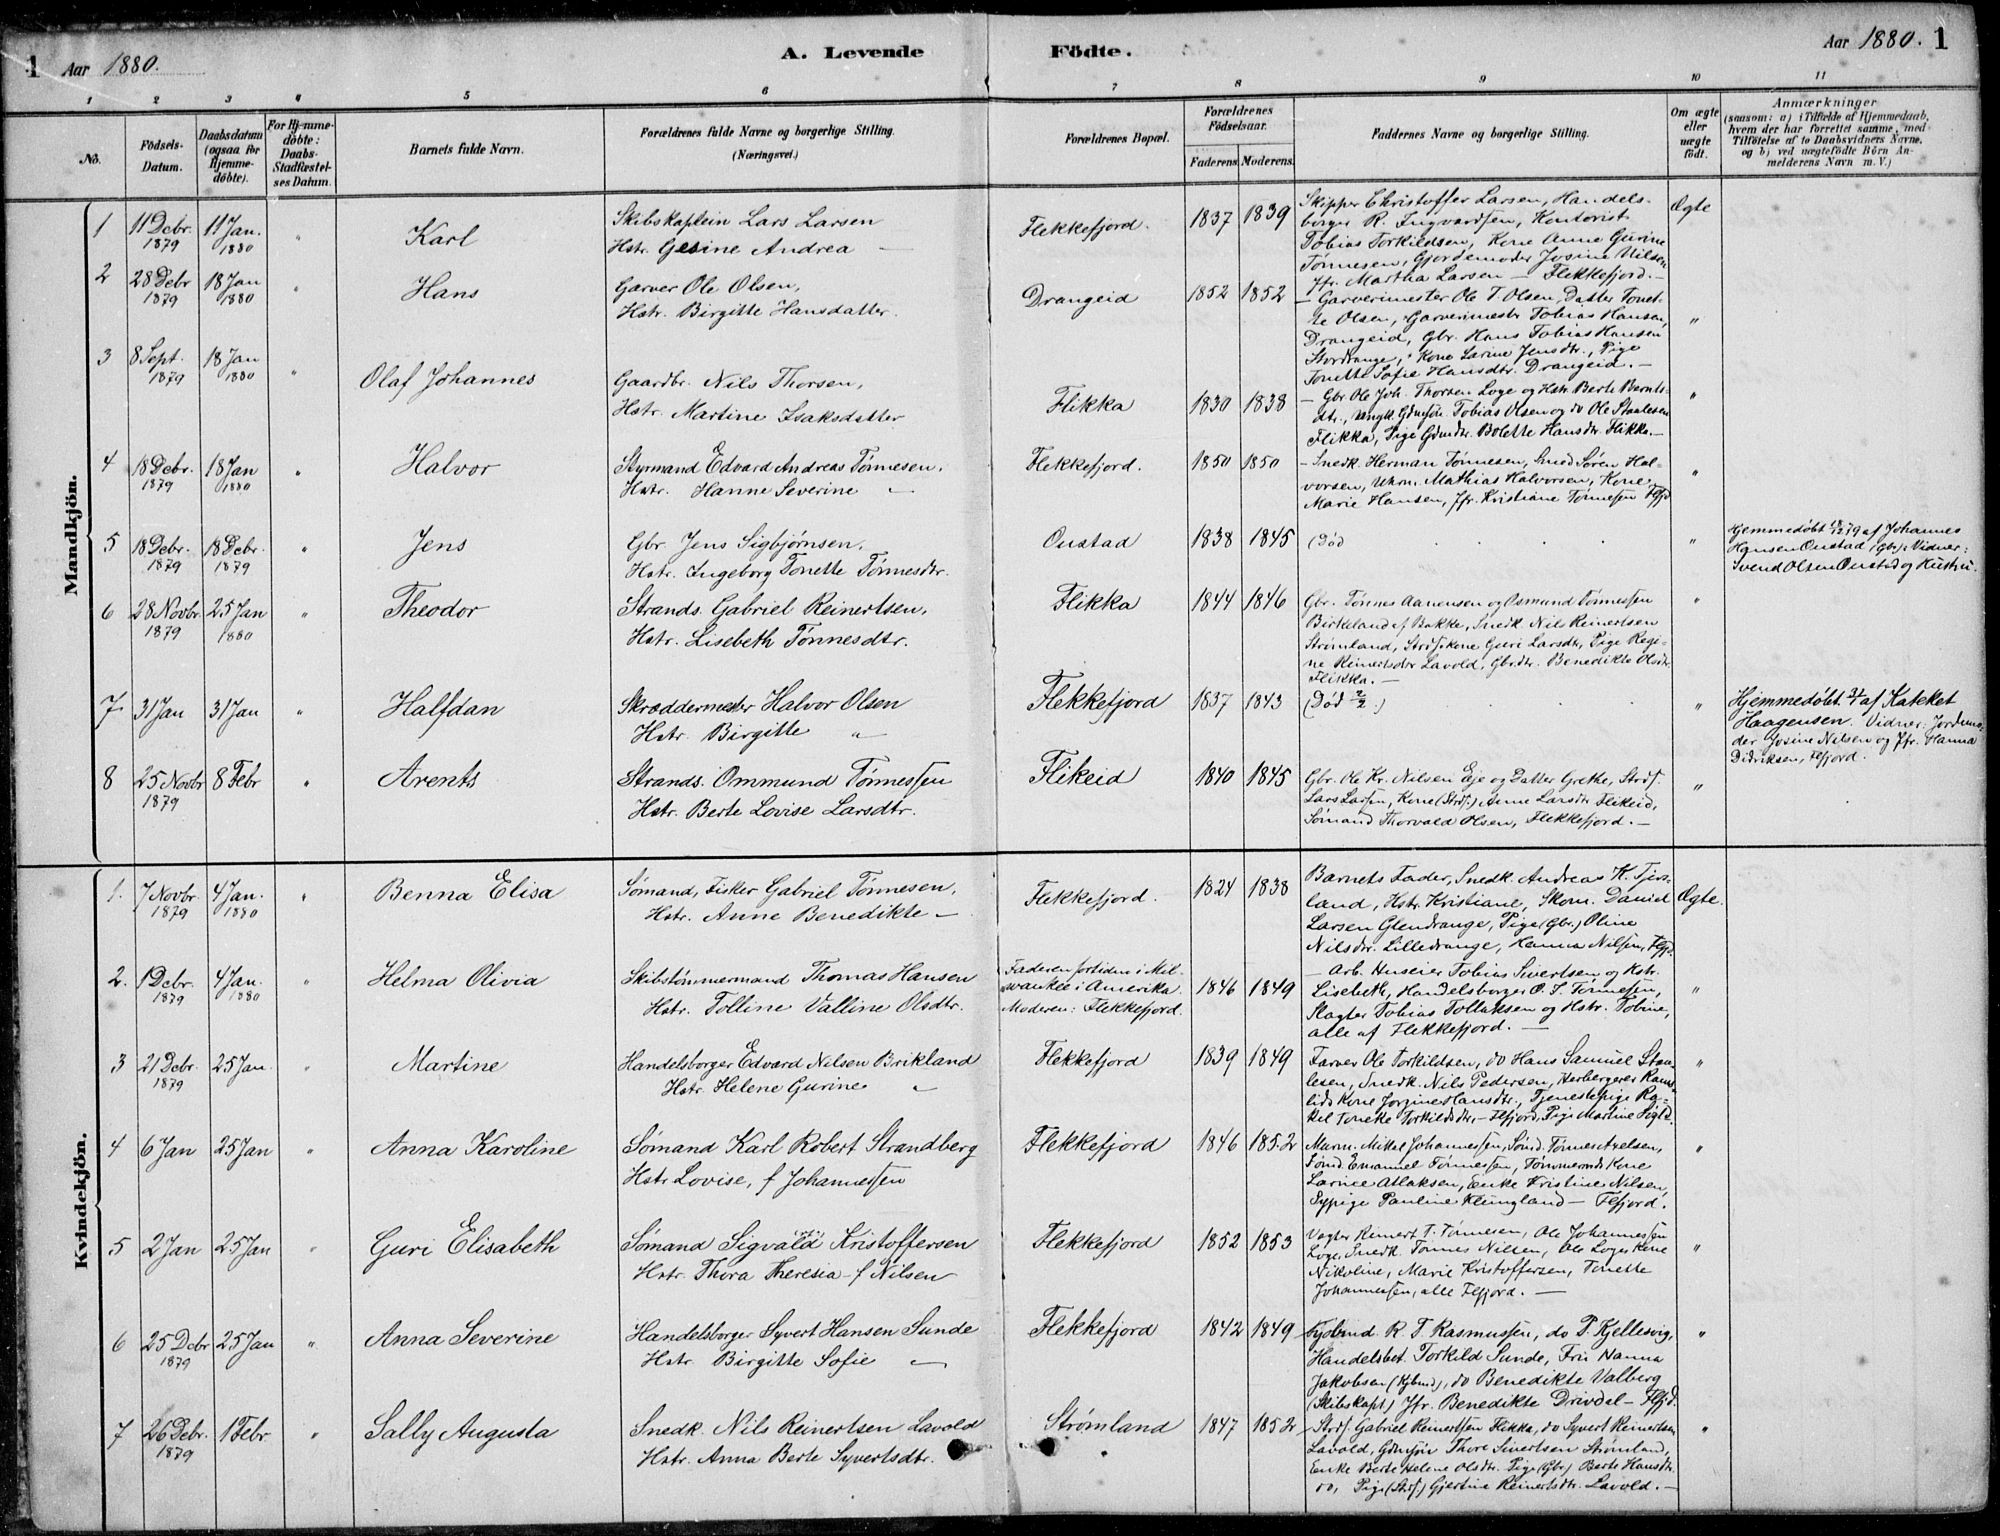 1 Aar 1880. A. Levende Födte. Aar 1880. 1
1 2 3 4 5 6 7 8 9 10 11
No.
Födsels-
Datum.
Daabsdatum
(ogsaa for
Hjemme-
döbte).
For Hjemme-
döbte:
Daabs-
Stadfæstel-
ses Datum.
Barnets fulde Navn.
Forældrenes fulde Navne og borgerlige Stilling.
(Næringsvei.)
Forældrenes Bopæl.
Forældrenes
Födselsaar.
Faderens. Moderens.
Faddernes Navne og borgerlige Stilling.
Om ægte
eller
uægte
födt.
Anmærkninger
(saasom: a) i Tilfælde af Hjemmedaab,
hvem der har forrettet samme, med
Tilföielse af to Daabsvidners Navne,
og b) ved uægtefödte Börn An-
melderens Navn m. V.)
Mandkjön.
1 11 Debr. 1879 11 Jan. 1880 " Karl
Skibskaptein Lars Larsen
Hstr. Gesine Andrea —
Flekkefjord. 1837 1839
Skipper Christoffer Larsen, Handels-
borger R. Ingvardsen, Kontorist
Tobias Torkildsen, Kone Anne Gurine
Tønnesen, Gjordemoder Josine Nilsen
Jfr. Martha Larsen — Flekkefjord. —
Ægte
2 28 Debr 1879 18 Jan 1880 " Hans
Garver Ole Olsen,
Hstr. Birgitte Hansdatter.
Drangeid 1852 1852
— Garvermester Ole T. Olsen, Datter Tonet-
te Olsen, Garvermestr Tobias Hansen,
Drangeid, Gbr. Hans Tobias Hansen
Stordrange, Kone Larine Jensdtr., Pige
Tonette Sofie Hansdtr. Drangeid. —
"
3 8 Sept. 1879 18 Jan 1880 " Olaf Johannes
Gaardbr. Nils Thorsen,
Hstr. Martine Isaksdatter
Flikka 1830 1838
— Gbr Ole Joh. Thorsen Loge og Hstr. Berte Bernts-
dtr., Ungk. Gdmsøn. Tobias Olsen og do Ole Staalesen
Flikka, Pige Gdmdtr. Bolette Hansdtr. Flikka. —
"
4 18 Debr. 1879 18 Jan 1880 " Halvor
Styrmand Edvard Andreas Tønnesen,
Hstr. Hanne Severine "
Flekkefjord. 1850 1850
— Snedk. Herman Tønnesen, Smed Søren Hal-
vorsen, Uhrm. Mathias Halvorsen, Kone
Marie Hansen, Jfr. Kristiane Tønnesen Flfjd
"
5 18 Debr. 1879 18 Debr. 1879 " Jens
Gbr. Jens Sigbjørnsen,
Hstr. Ingeborg Tonette Tønnesdtr.
Oustad 1838 1845 (Død . . . "
Hjemmedøbt 18/12 79 af Johannes
Hansen Oustad (Gbr). Vidner:
Svend Olsen Oustad og Hustru.
6 28 Novbr. 1879 25 Jan 1880 " Theodor
Strands. Gabriel Reinertsen,
Hstr. Lisebeth Tønnesdtr.
Flikka 1844 1846
Gbr. Tønnes Aanensen og Osmund Tønnessen
Birkeland af Bakke, Snedk. Nils Reinertsen
Strømland, Strdskone Guri Larsdtr, Pige Regi-
ne Reinertsdtr Lavold, Gbr.dtr. Benedikte Olsdtr
Flikka. —
"
7 31 Jan 31 Jan " Halfdan
Skræddermester Halvor Olsen
Hstr. Birgitte "
Flekkefjord 1837 1843 (Død 2/2.) . . "
Hjemmedøbt 31/1 af Kateket
Haagensen. Vidner: Jordmo-
der Josine Nilsen og Jfr. Hanna
Didriksen, Flfjord.
8 25 Novbr 1879 8 Febr " Arents
Strands. Ommund Tønnessen
Hstr. Berte Lovise Larsdtr.
Flikeid 1840 1845
Gbr. Ole Kr. Nilsen Eje og Datter Grethe, Strds.
Lars Larsen, Kone (Strds.) Anne Larsdtr Flikeid,
Sømand Thorvald Olsen, Flekkefjord. —
"
Kvindekjön.
1. 7 Novbr. 1879 4 Jan. 1880 " Benna Elisa
Sømand, Fisker Gabriel Tønnesen,
Hstr. Anne Benedikte —
Flekkefjord. 1824 1838
Barnets Fader, Snedk. Andreas K. Tjers-
land, Hstr. Kristiane, Skom. Daniel
Larsen Glendrange, Pige (Gbr.) Oline
Nilsdtr. Lilledrange, Hanna Nilsen, Flfjd.
Ægte.
2. 1 Debr. 1879 4 Jan. 1880 " Helma Olivia
Skibstømmermand Thomas Hansen
Hstr. Tolline Valline Olsdtr.
Faderen fortiden i Mil-
waukee i Amerika.
Moderen: Flekkefjord.
1846 1849
— Arb. Huseier Tobias Sivertsen og Hstr.
Lisebeth, Handelsborger O. S. Tønnesen,
Slagter Tobias Tollaksen og Hstr. Tobine,
alle af Flekkefjord. —
"
3 21 Debr. 1879 25 Jan. " Martine
Handelsborger Edvard Nilsen Brikland
Hstr. Helene Gurine "
Flekkefjord 1839 1849
Farver Ole Torkildsen, do Hans Samuel Staa-
lesen, Snedk. Nils Pedersen, Herbergerer Rams-
lids Kone Jorgine Hansdtr., Tjenestepige Ra-
kel Toneke Torkildsdtr. — Flfjord, Pige Martine
"
4 6 Jan 25 Jan " Anna Karoline
Sømand Karl Robert Strandberg
Hstr Lovise, f Johannessen
Flekkefjord 1846 1852
Murm. Mikal Johannessen, Sømd. Tønnes Axelsen,
Sømd. Emanuel Tønnessen, Tømmermds Kone
Larine Atlaksen, Enke Kristine Nilsen,
Sypige Pauline Klungland — Flfjord.
"
5 2 Jan 25 Jan " Guri Elisabeth
Sømand Sigvald Kristoffersen
Hstr. Thora Theresia — f Nilsen
Flekkefjord 1852 1853
Vegter Reinert T. Tønnesen, Ole Johannessen
Loge, Snedk. Tønnes Nilsen, Ole Loges Kone
Nikoline, Marie Kristoffersen, Tonette
Johannessen, alle Flfjord. —
"
6 25 Debr 1879 25 Jan " Anna Severine
Handelsborger Syvert Hansen Sunde
Hstr. Birgitte Sofie "
Flekkefjord 1842 1849
Kjøbmd. R. T. Rasmussen, do P. Kjellesvig,
Handelsbet. Torkild Sunde, Fru Nanna
Jakobsen (Kjbmd), do Benedikte Valberg
(Skibskapt.) Jfr. Benedikte Drivdal — Flfjd.
"
7 26 Debr. 1879 1 Febr " Sally Augusta
Snedk. Nils Reinertsen Lavold
Hstr. Anna Berte Syvertsdtr.
Strømland 1847 1852
— Strds. Gabriel Reinertsen Flikka, do Syvert Reinertsen
Lavold, Gdmsøn Thore Sivertsen Strømland,
Enke Berte Helene Olsdtr. Pige (Gbr.) Berte Hansdtr.
do, Pige (Strds.) Gjertine Reinertsdtr. Lavold. —
"